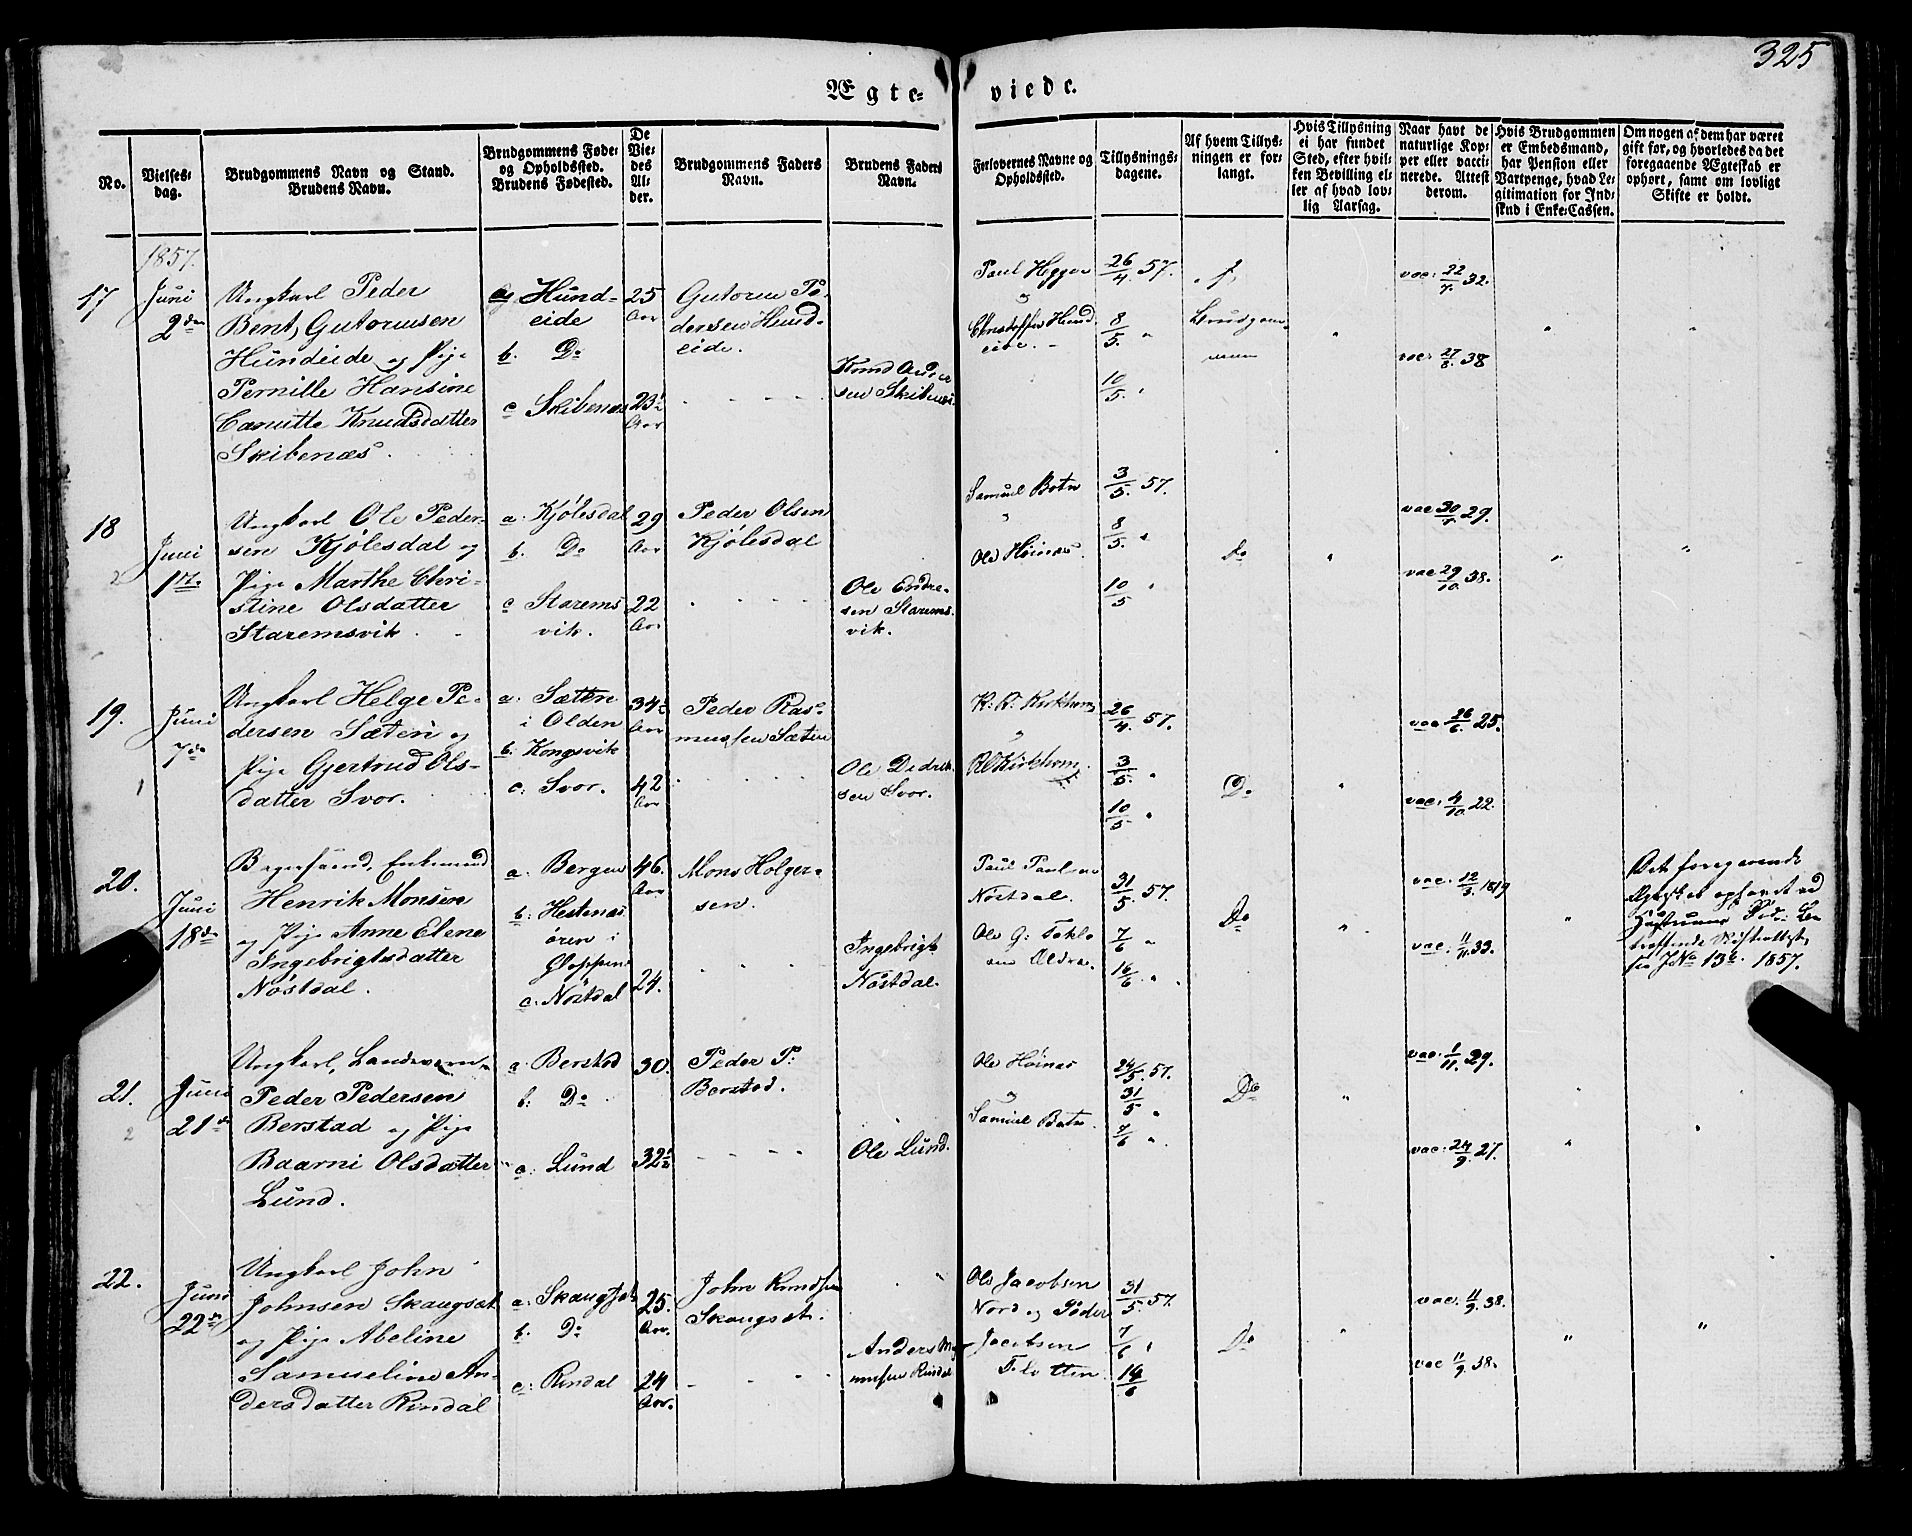 325
Ægte- viede.
No.
Vielses-
dag.
Brudgommens Navn og Stand.
Brudens Navn.
Brudgommens Føde-
og Opholdssted.
Brudens Fødested.
De
Vie-
des
Al-
der.
Brudgommens Faders
Navn.
Brudens Faders
Navn.
Forlovernes Navne og
Opholdssted.
Tillysnings-
dagene.
Af hvem Tillys-
ningen er for-
langt.
Hvis Tillysning
ei har fundet
Sted, efter hvil-
ken Bevilling el-
ler af hvad lov-
lig Aarsag.
Naar havt de
naturlige Kop-
per eller vacci-
nerede. Attest
derom.
Hvis Brudgommen
er Embedsmand,
har Pension eller
Vartpenge, hvad Le-
gitimation for Ind-
skud i Enke-Cassen.
Om nogen af dem har været
gift før, og hvorledes da det
foregaaende Ægteskab er
ophørt, samt om lovligt
Skifte er holdt.
1857.
17
Juni
2den
Ungkarl Peder
Bent Gutormsen
Hundeide og Pige
Pernille Hansine
Canutte Knudsdatter
Skibenæs.
a. Hund-
eide
b. Do
c Skibenæs
25
Aar
23½
Aar
Gutorm Pe-
dersen Hund-
eide.
Knud Ander
sen Skibenæs.
Paul Heggen
og
Christoffer Hund-
eide.
26/4 57.
8/5. "
10/5. "
f
Brudgom-
men
"
vac: 22/7. 32.
vac: 27/8. 38
"
"
18
2
Juni
1ste
Ungkarl Ole Peder-
sen Kjølesdal og
Pige Marthe Chri-
stine Olsdatter
Staremsvik.
a. Kjølesdal
b. Do
c Starems
vik.
29
Aar
22
Aar
Peder Olsen
Kjølesdal
Ole Endre-
sen Starems-
vik.
Samuel Botn
og
Ole Høinæs.
3/5. 57.
8/5. "
10/5 "
Do
"
vac 30/7 29.
vac 29/10. 38.
"
"
19.
1
Juni
7de
Ungkarl Helge Pe-
dersen Sæten og
Pige Gjertrud Ols-
datter Svor.
a. Sæten
i Olden
b. Kongsvik
c. Svor.
34½
Aar
42
Aar
Peder Ras-
mussen Sæten
Ole Didrik-
sen Svor.
og
26/4. 57.
3/5. "
10/5 "
Do
"
vac 26/6. 25.
vac. 4/10. 22.
20.
Juni
18de
Henrik Monsen
og Pige Anne Elene
Ingebrigtsdatter
Nøstdal.
a. Bergen
b. Hestenæs
øren i
Gloppen
c. Nøstdal
46.
Aar
24.
Mons Holger-
sen.
Ingebrigt
Nøstdal.
Paul Paulsen
Nøstdal.
31/5 57.
7/6 "
14/6 "
Do
"
vac. 12/3. 1819
vac. 11/11. 33.
"
Det foregaaende
Ægtesk. er ophævet ved
1857.
21.
2
Juni
21de
Ungkarl, Landværn-
Peder Pedersen
Berstad og Pige
Baarni Olsdatter
Lund.
a. Berstad
b. Do
c. Lund
30.
32½
Peder P:
Berstad.
Ole Lund.
Ole Høinæs
og
Samuel Botn.
24/5. 57.
31/5 "
7/6 "
Do
"
vac. 1/11. 29.
vac: 24/9. 27.
"
"
22.
Juni
22de
Ungkarl John
Johnsen Skaugsæt
og Pige Abeline
Samueline An-
dersdatter Rindal
a. Skaugsæt
b. Do
c. Rindal
25.
Aar.
24
Aar.
John Knudsen
Skaugsæt.
Anders Mag-
Ole Jacobsen
Nord og Peder
Jacobsen
Flotten.
31/5. 57.
7/6 "
14/6
Do
"
vac. 11/9. 38.
vac 11/9. 38.
"
"